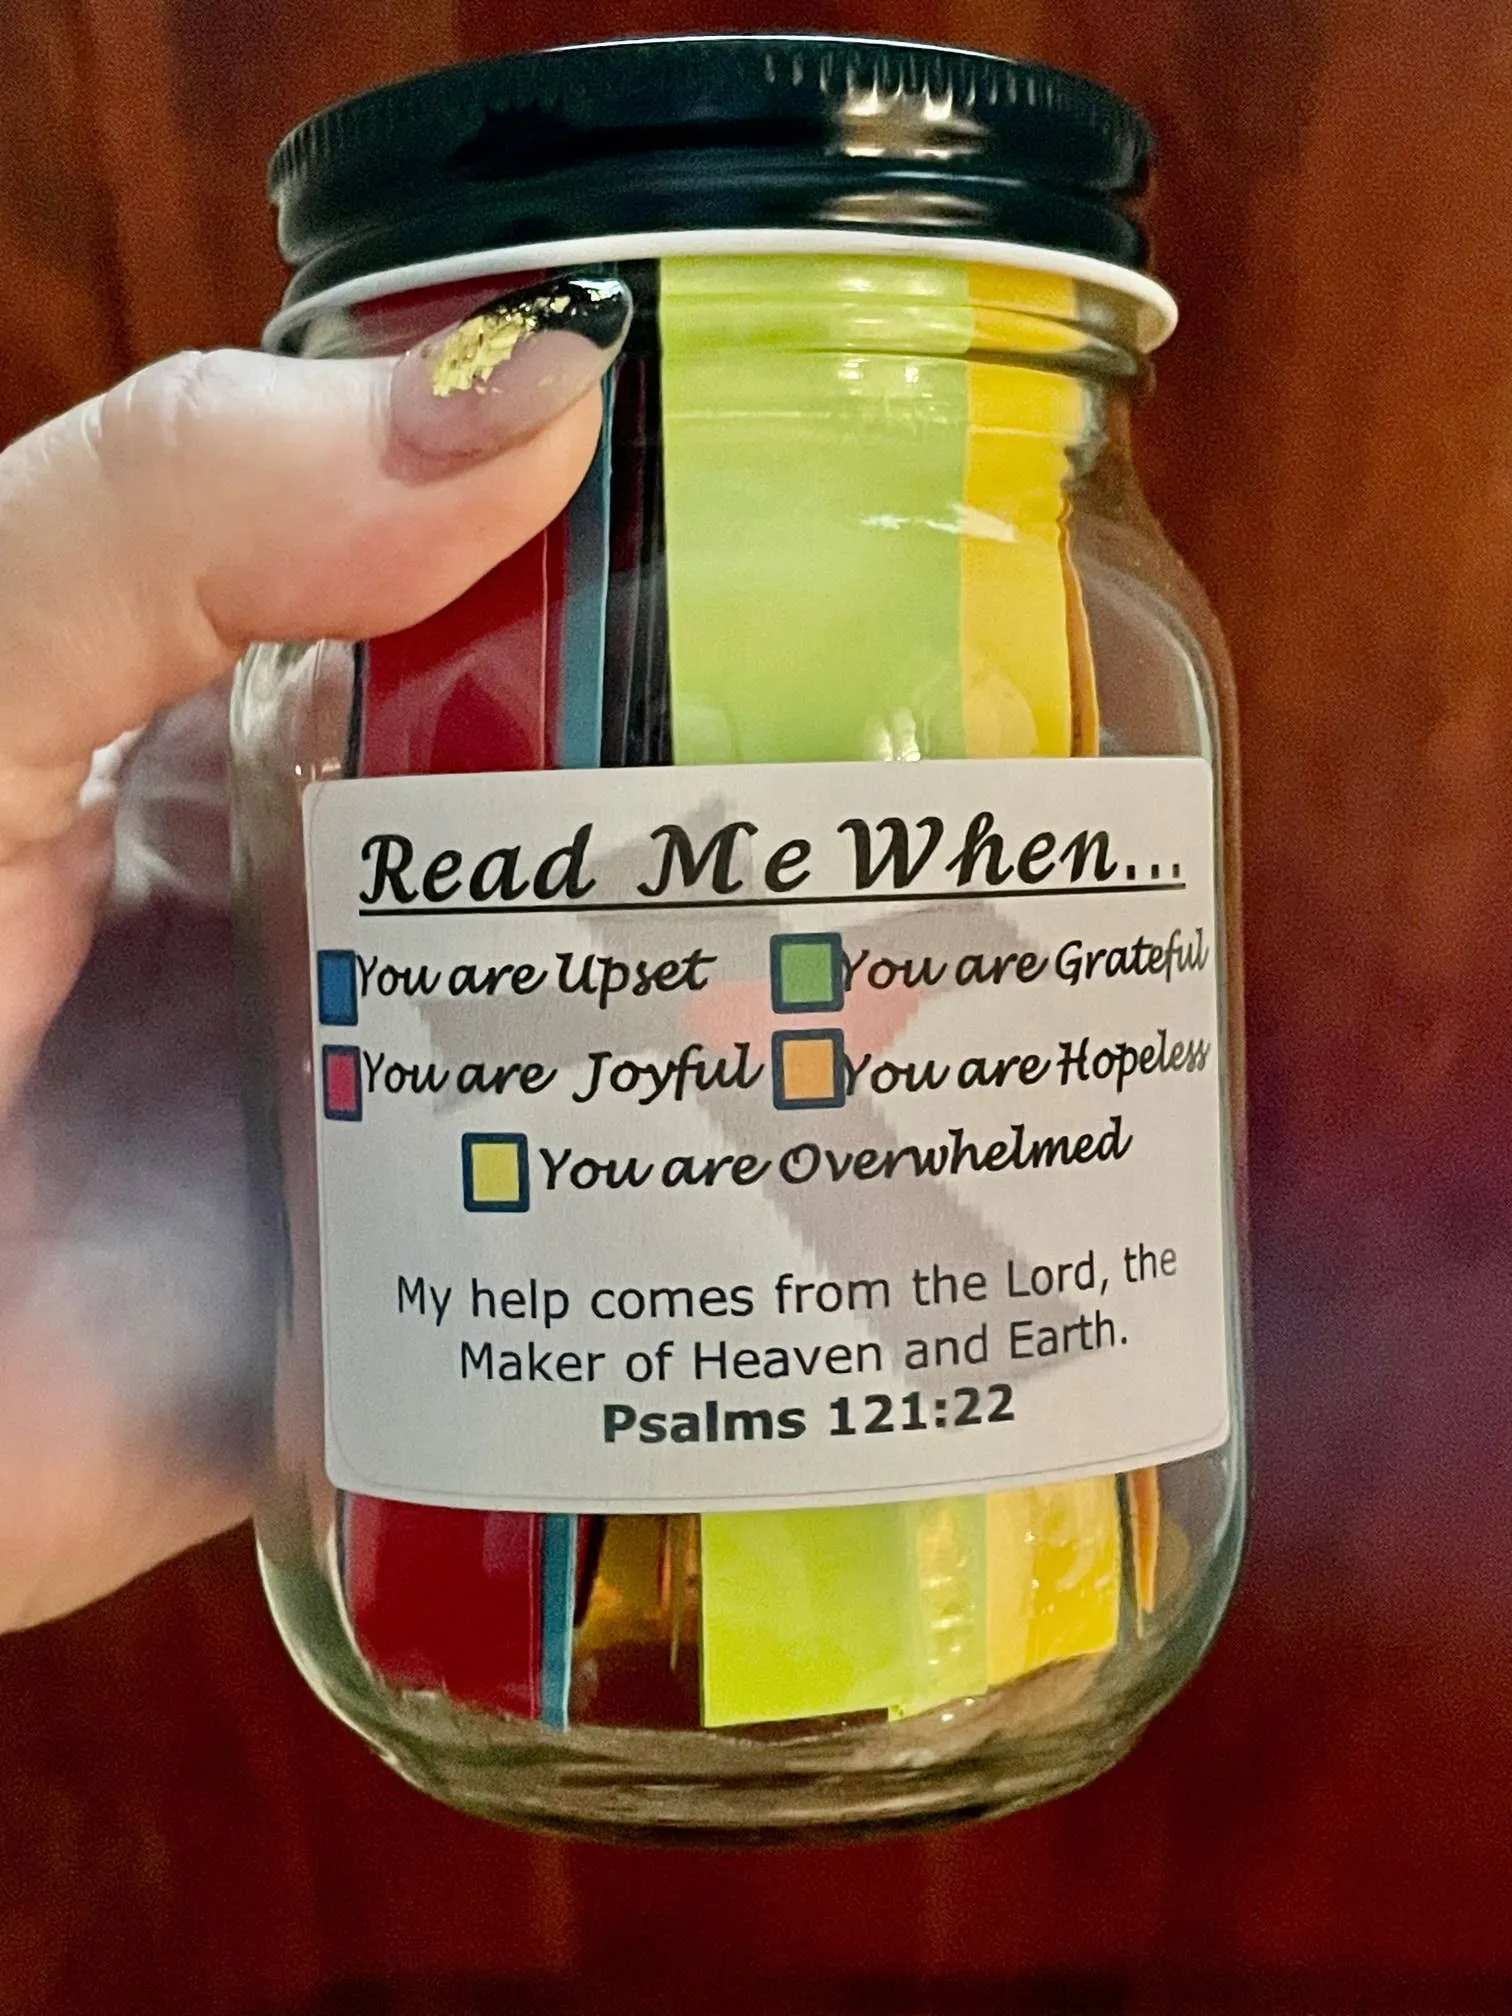 Read Me When...
You are Upset You are Grateful
You are Joyful You are Hopeless
You are Overwhelmed
My help comes from the Lord, the
Maker of Heaven and Earth.
Psalms 121:22